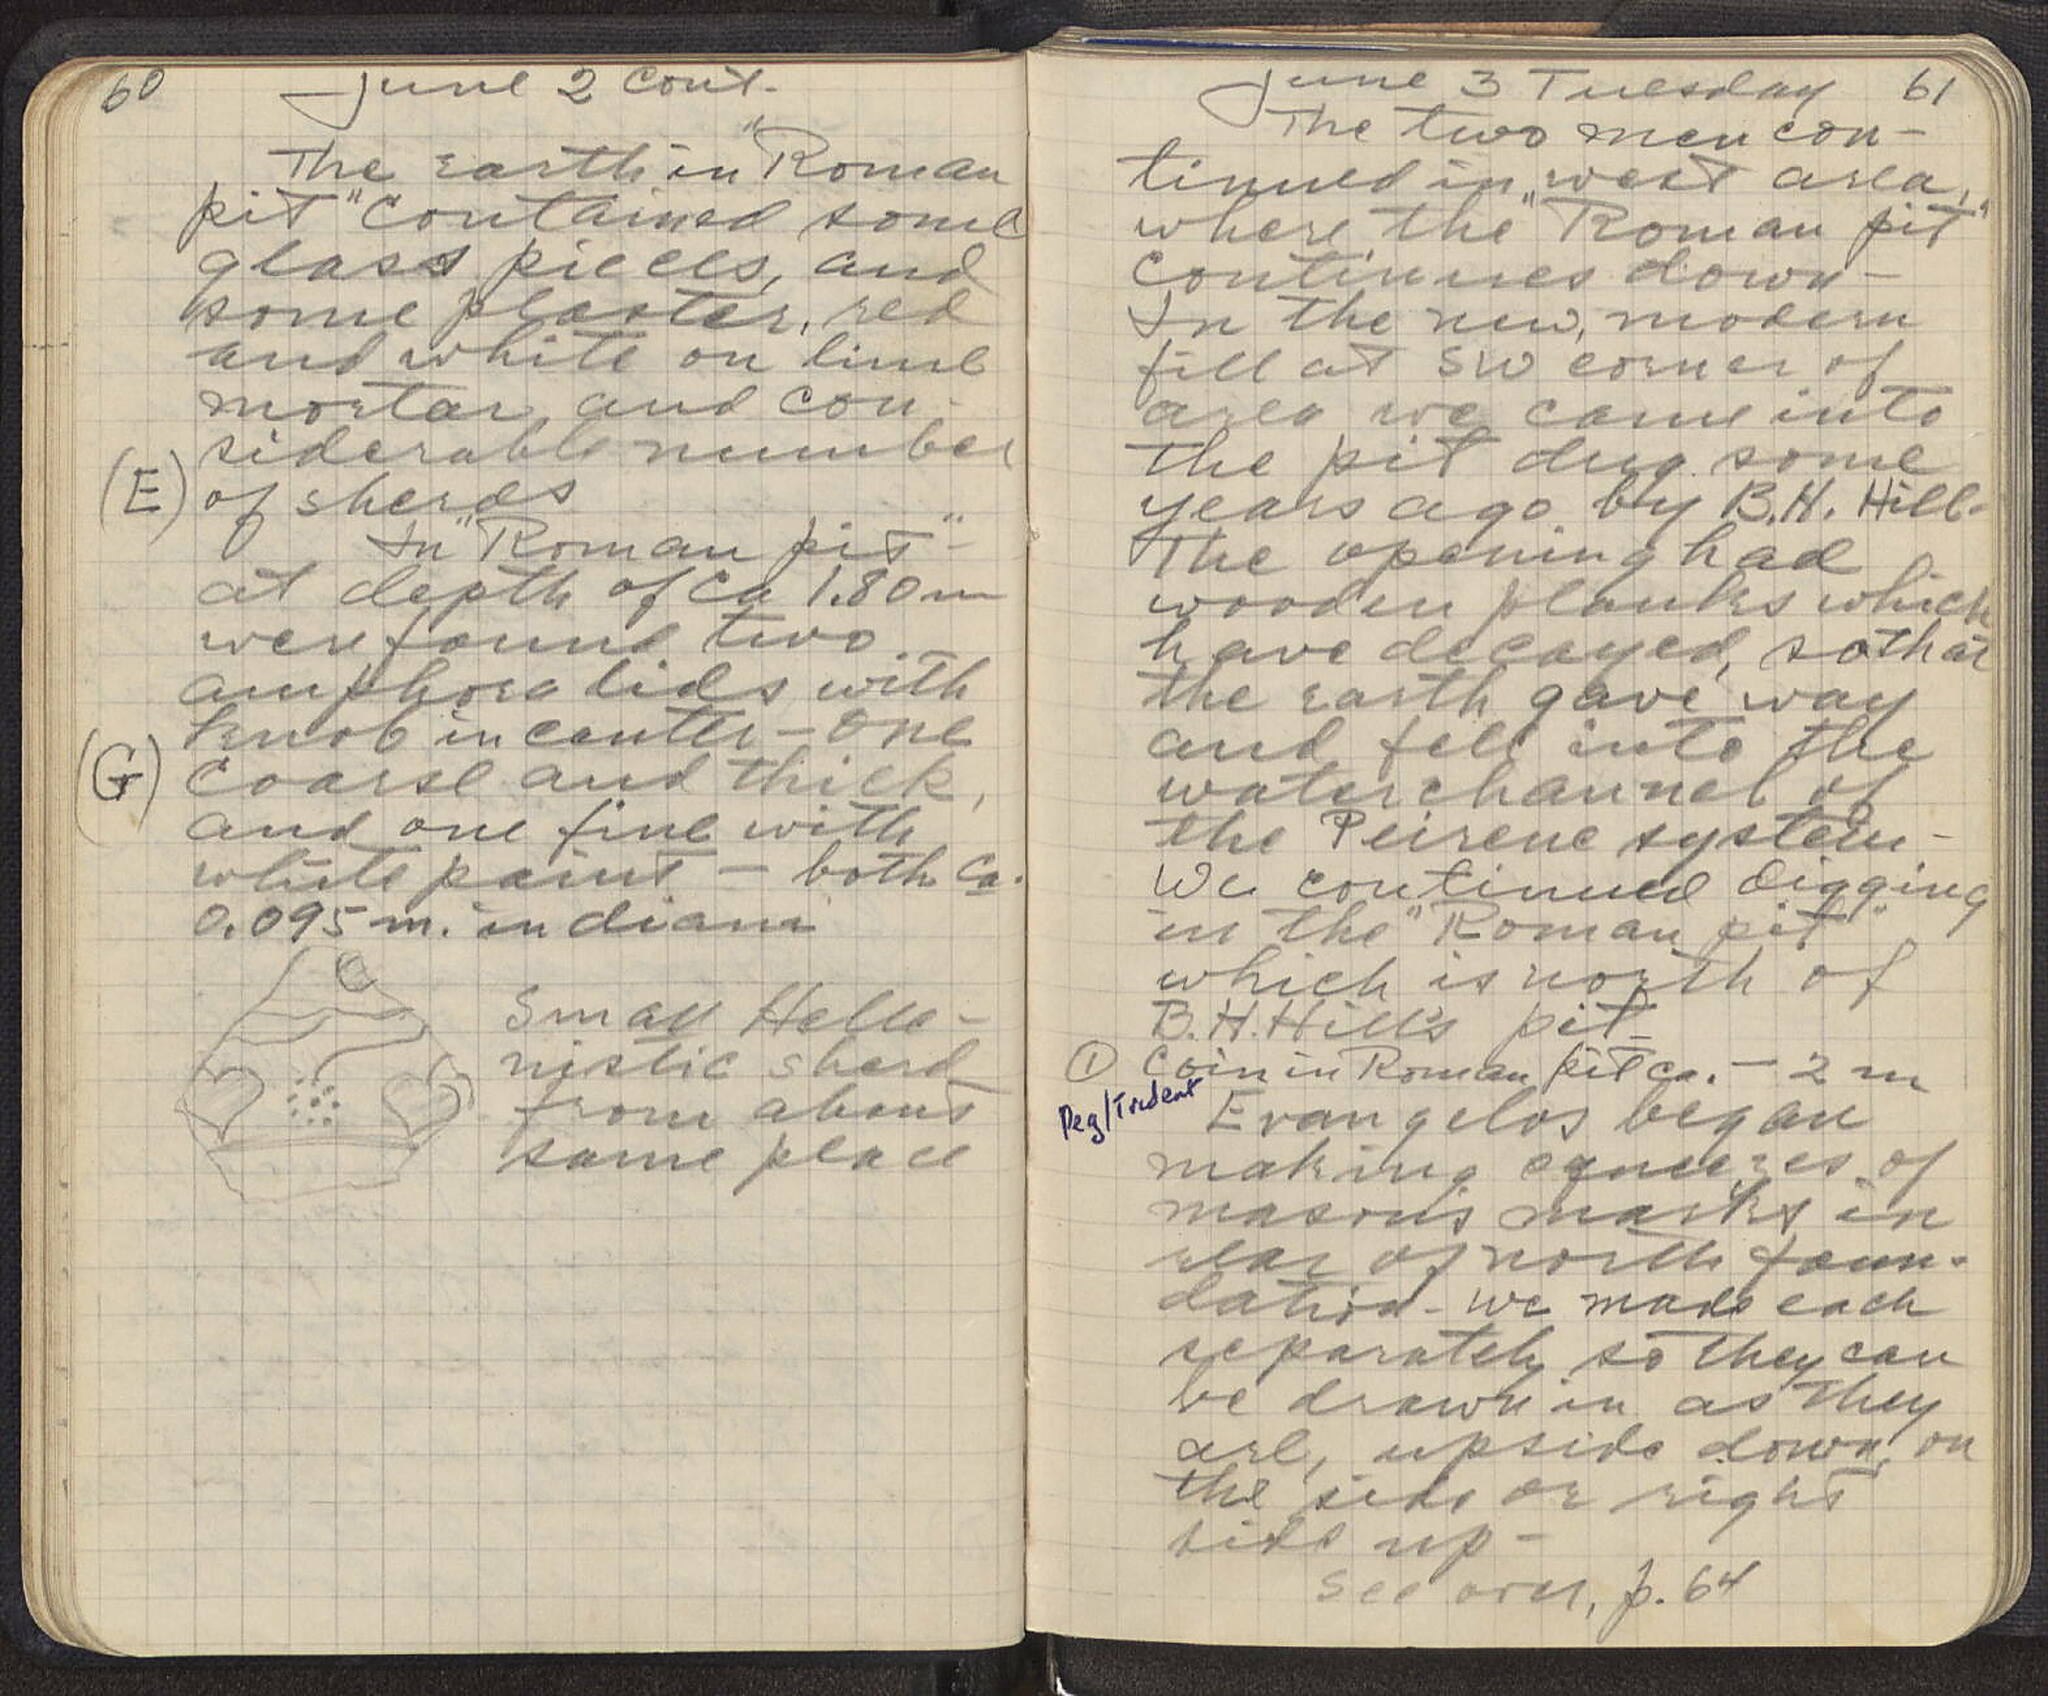 60
June 2 cont.
The earth in "Roman
pit" contained some
glass pieces, and
some plaster, red
and white on lime
mortar, and con-
siderable number
(E) of sherds
In "Roman pit" -
at depth of ca 1.80 m
were found two
amphora lids with
knob in center - one
(G) coarse and thick,
and one fine with
white paint - both ca.
0.095 m. in diam
Small Helle-
nistic sherd
from about
same place
June 3 Tuesday 61
The two men con-
tinued in west area,
where the "Roman pit"
continues down -
In the new, modern
fill at SW corner of
area we came into
the pit dug some
years ago by B.H. Hill.
The opening had
wooden planks which
have decayed, so that
the earth gave way
and fell into the
water channel of
the Peirene system -
We continued digging
in the "Roman pit"
which is north of
B.H. Hill's pit -
① Coin in Roman pit ca. - 2 m
Peg/Trident
Evangelos began
making squeezes of
mason's marks in
rear of north foun-
dation - We made each
separately so they can
be drawn in as they
are, upside down, on
the side or right
side up -
see over, p. 64